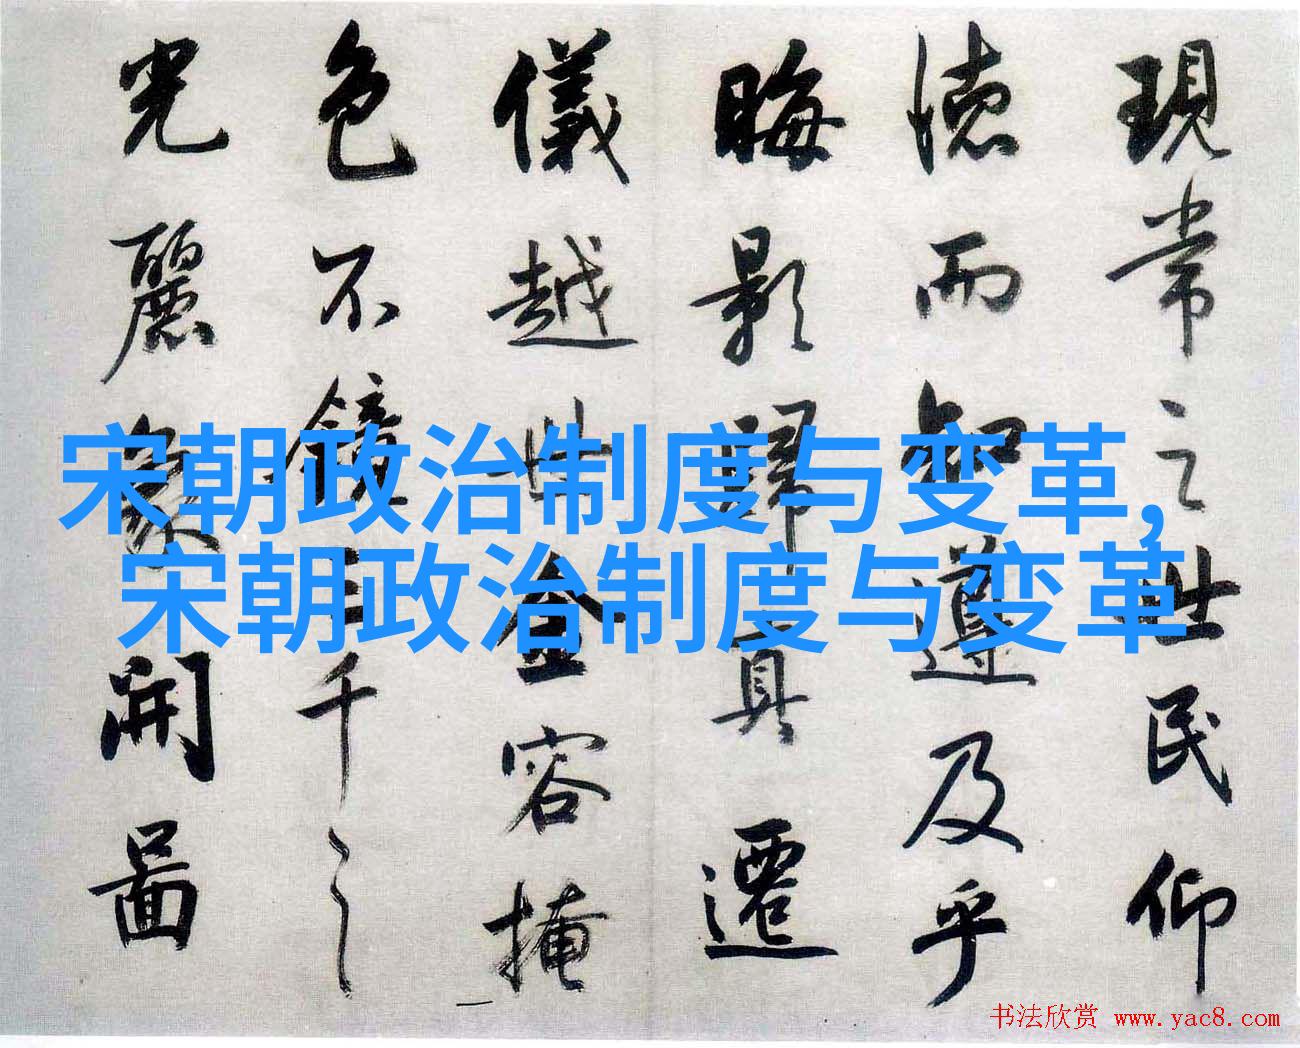 現常之世民仰
德而知遵及乎
晦影歸真遷
儀越世金容掩
色不鏡三千之
光麗象開圖
宋朝政治制度与变革,
宋朝政治制度与变革
书法欣赏 www.yac8.com